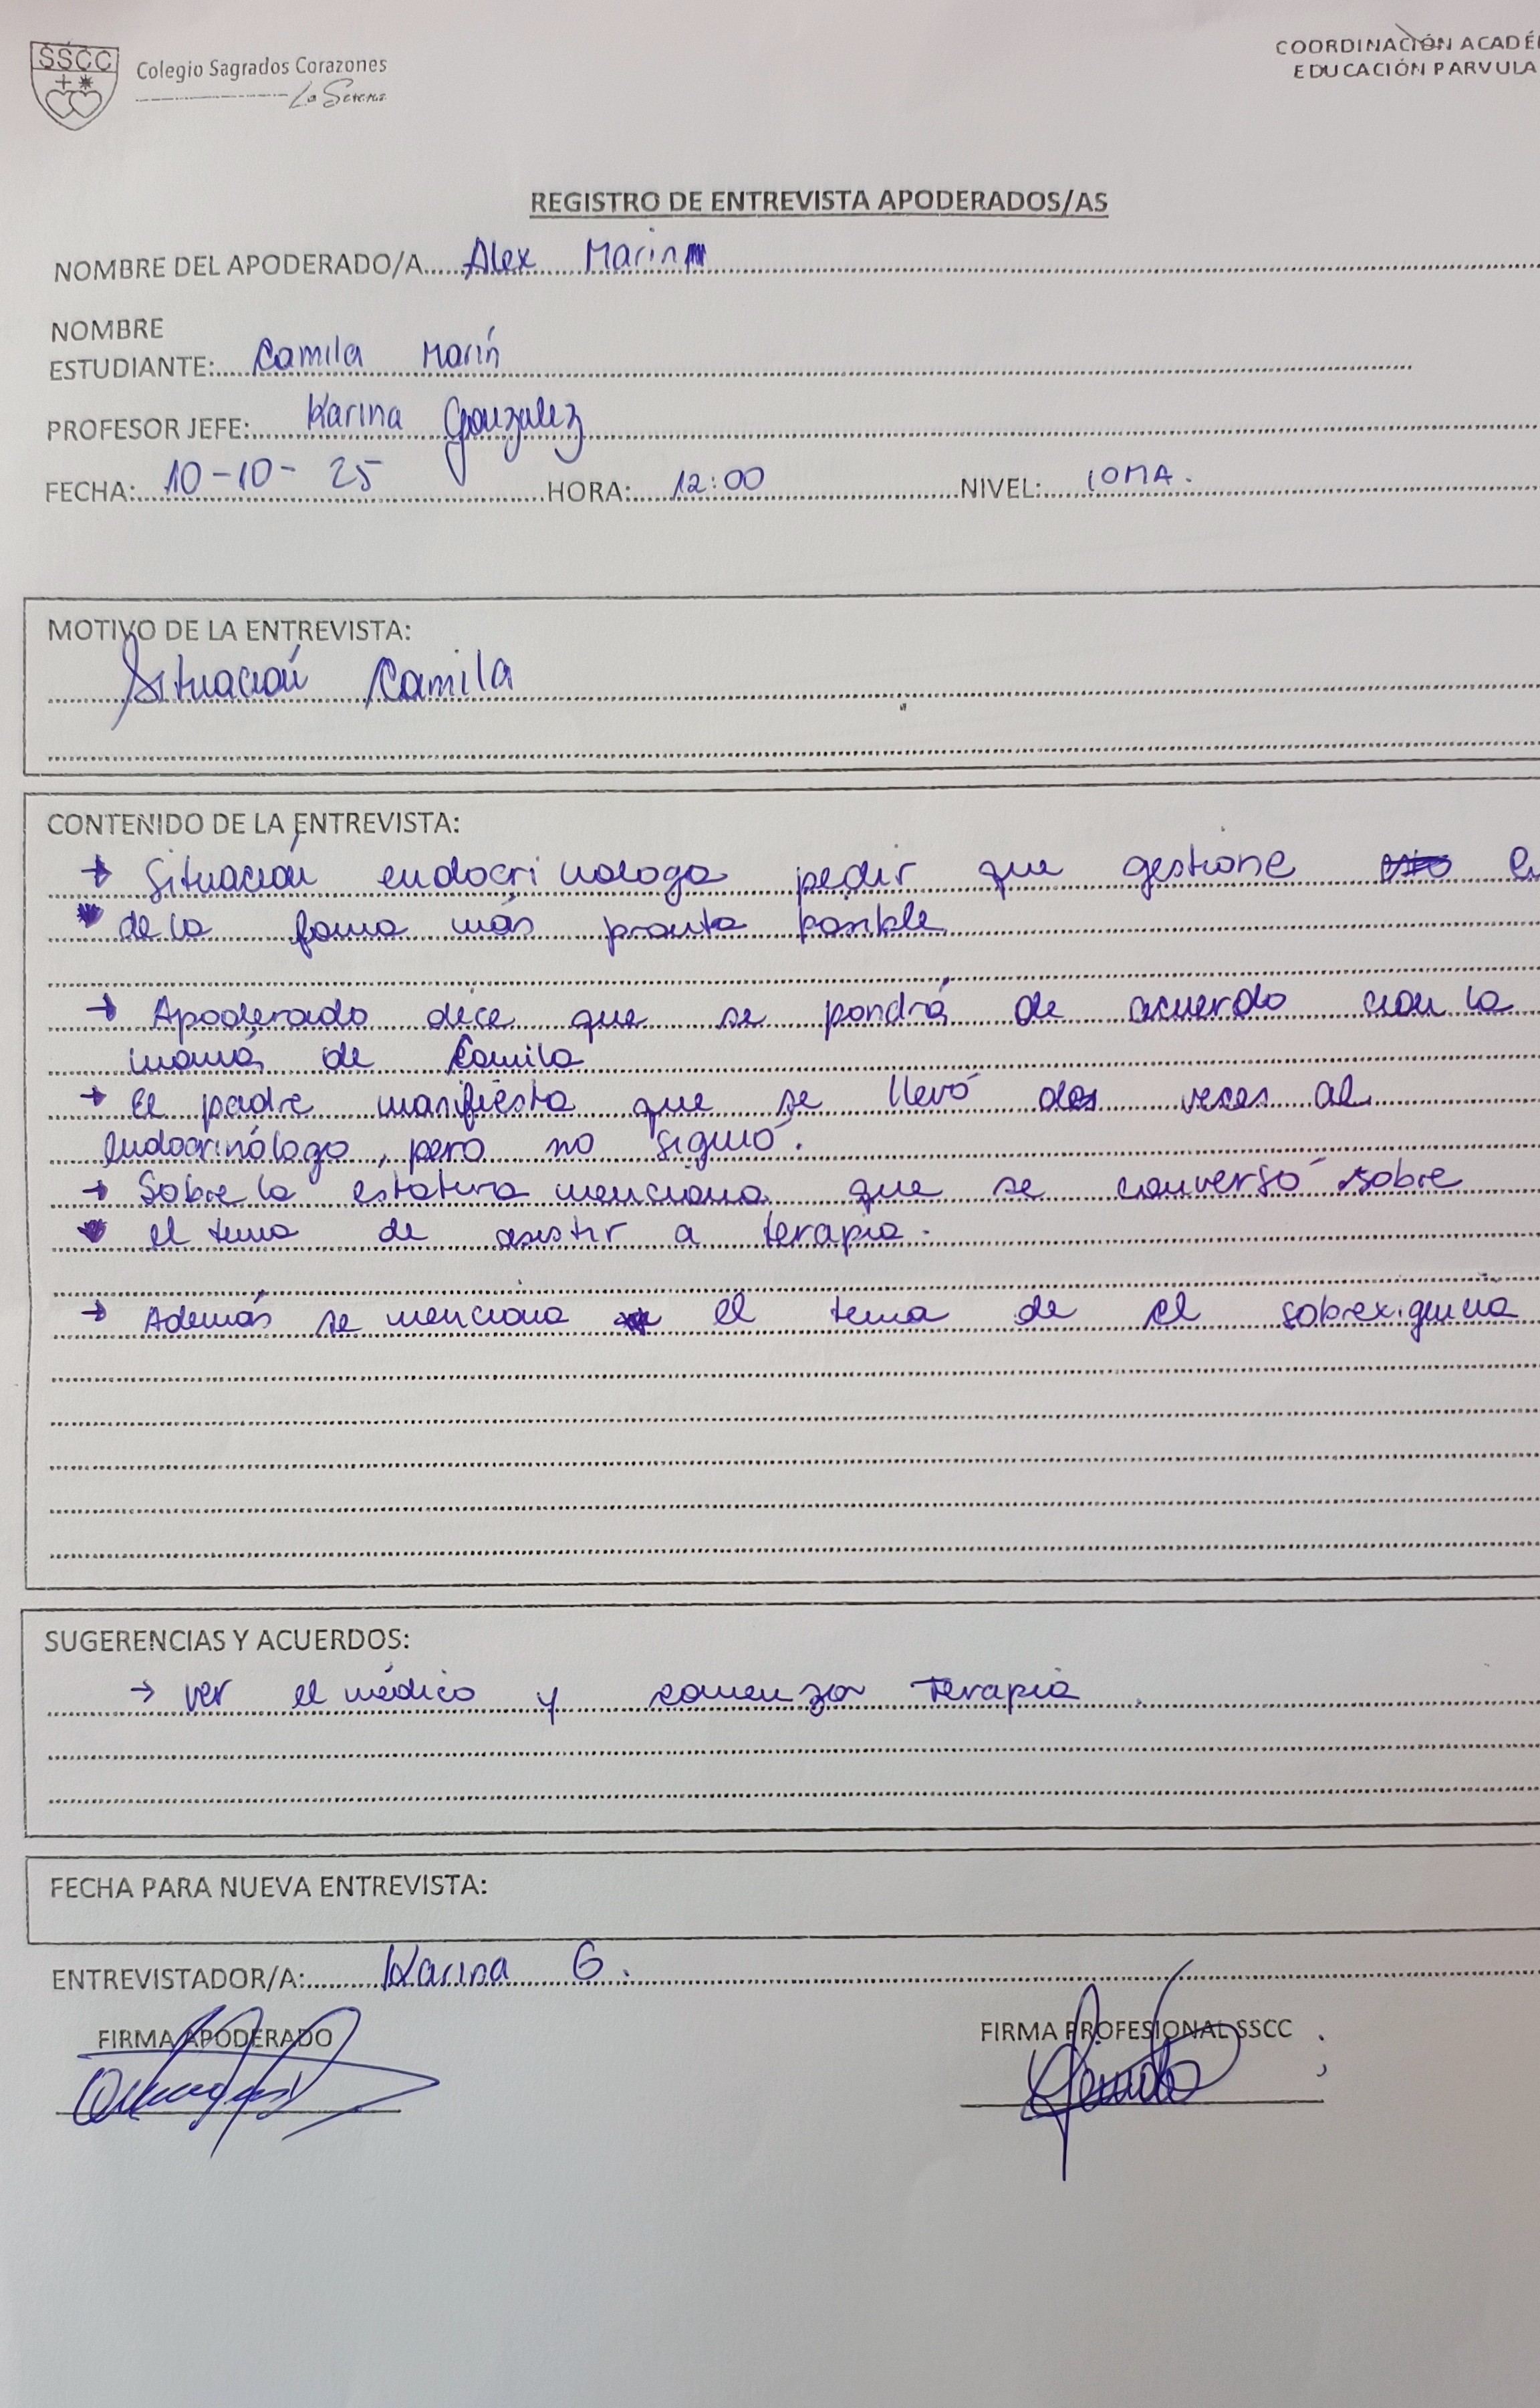 SSCC
Colegio Sagrados Corazones
La Serena
COORDINACIÓN ACADÉ
EDUCACIÓN PARVULA
REGISTRO DE ENTREVISTA APODERADOS/AS
NOMBRE DEL APODERADO/A Alex Marin
NOMBRE
ESTUDIANTE: Camila Marín
PROFESOR JEFE: Karina Gonzalez
FECHA: 10-10-25 HORA: 12:00 NIVEL:
MOTIVO DE LA ENTREVISTA:
Situación Camila
CONTENIDO DE LA ENTREVISTA:
→ Situación endocrinologa pedir que gestione
de la forma más pronta posible
→ Apoderado dice que se pondrá de acuerdo con la
mamá de Camila
→ El padre manifiesta que se llevó dos veces al
endocrinólogo, pero no siguió.
→ Sobre la estatura menciona que se conversó sobre
el tema de asistir a terapia.
→ Además se menciona el tema de el sobrexigencia
SUGERENCIAS Y ACUERDOS:
→ ver el médico y comenzar terapia.
FECHA PARA NUEVA ENTREVISTA:
ENTREVISTADOR/A: Karina G.
FIRMA APODERADO FIRMA PROFESIONAL SSCC